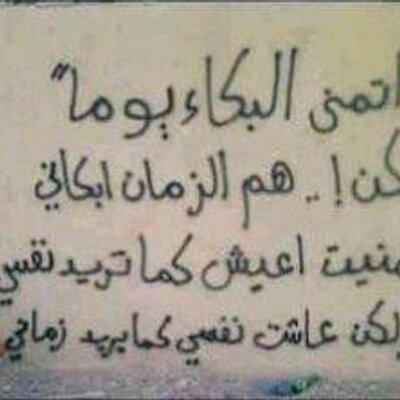 اتمنى البكاء يوماً"
كن!.. هم الزمان ابكاني
منيت اعيش كما تريد نفس
لكن عاشت نفسي كما يريد زماني